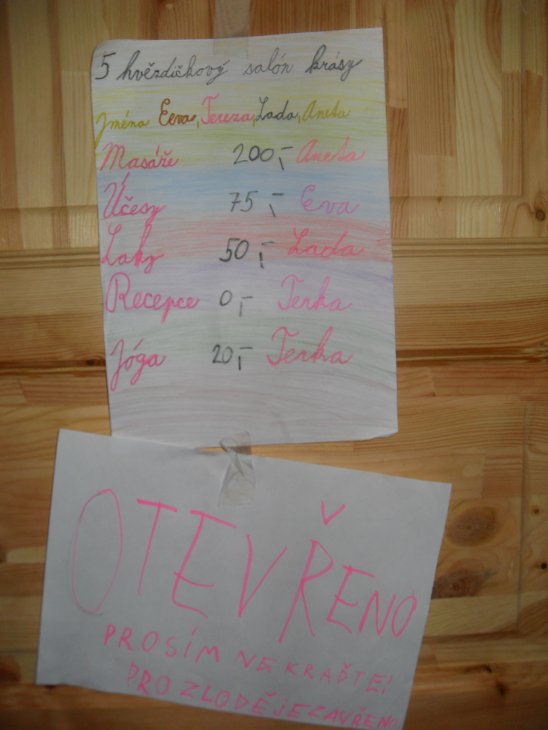 5 hvězdičkový salón krásy
Jména Eva, Tereza, Lada, Aneta
Masáže 200,- Aneta
Účesy 75,- Eva
Laky 50,- Lada
Recepce 0,- Terka
Jóga 20,- Terka
OTEVŘENO
PROSÍM NEKRAĎTE!
PRO ZLODĚJE ZAVŘENO